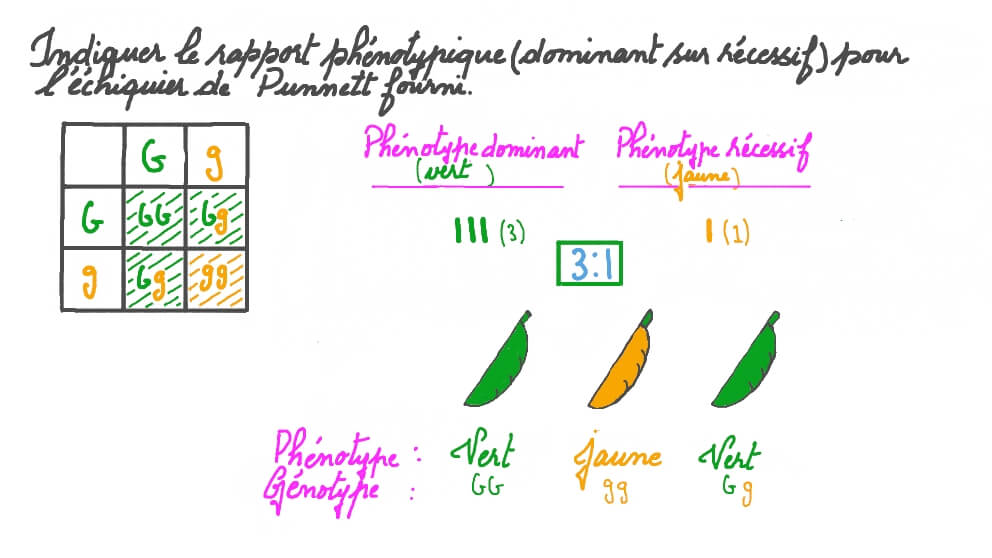 Indiquer le rapport phénotypique (dominant sur récessif) pour
l'échiquier de Punnett fourni.
G g
G GG Gg
g Gg gg
Phénotype dominant Phénotype récessif
(vert) (jaune)
III (3) I (1)
3:1
Phénotype : Vert jaune Vert
Génotype : GG gg Gg